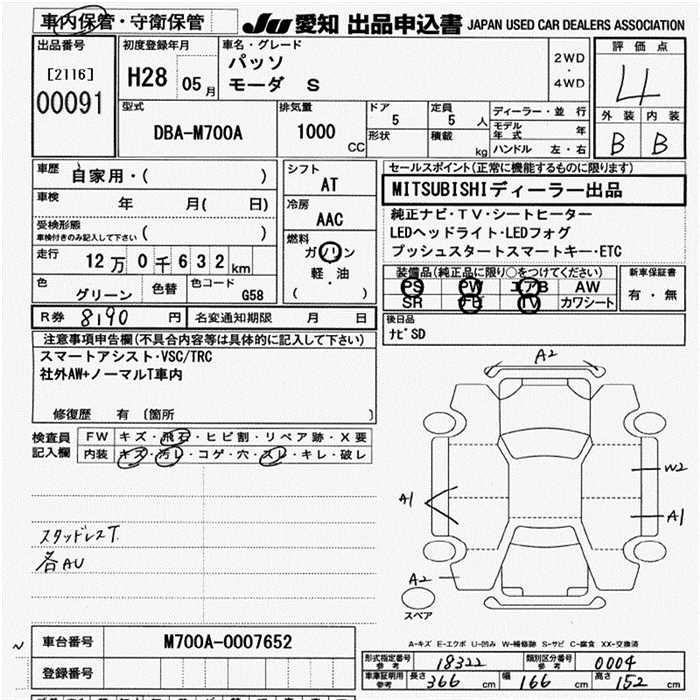 車内保管・守衛保管 JU 愛知 出品申込書 JAPAN USED CAR DEALERS ASSOCIATION
出品番号 [2116] 00091
初度登録年月 H28 05月
車名・グレード パッソ モーダ S
2WD・4WD
評価点 4
外装 内装
B B
型式 DBA-M700A
排気量 1000 CC
ドア 5 形状
定員 5 人 積載 kg
ディーラー・並行
モデル年式 年
ハンドル 左・右
車歴 自家用・( )
車検 年 月( 日)
受検形態 車検付きのみ記入して下さい ( )
走行 12万0千632km
色 グリーン 色替 色コード G58
シフト AT
冷房 AAC
燃料 ガソリン 軽・油 ( )
セールスポイント(正常に機能するものに限ります)
MITSUBISHIディーラー出品
純正ナビ・TV・シートヒーター
LEDヘッドライト・LEDフォグ
プッシュスタートスマートキー・ETC
装備品(純正品に限り○をつけてください)
PS PW エアB AW
SR TV カワシート
新車保証書 有・無
R券 8190 円 名変通知期限 月 日
後日品 ナビSD
注意事項申告欄(不具合内容等は具体的に記入して下さい)
スマートアシスト・VSC/TRC
社外AW+ノーマルT車内
修復歴 有 〔箇所 〕
検査員記入欄
FW キズ・飛石・ヒビ割・リペア跡・X要
内装 キズ・汚レ・コゲ・穴・スレ・キレ・破レ
スタッドレスT.
各AU
A2
W2
A1
A1
A2
スペア
A-キズ E-エクボ U-凹み W-補修跡 S-サビ C-腐食 XX-交換済
車台番号 M700A-0007652
登録番号
形式指定番号 参考 18322 類別区分番号 参考 0004
車庫証明用 参考 長さ 366 cm 幅 166 cm 高さ 152 cm